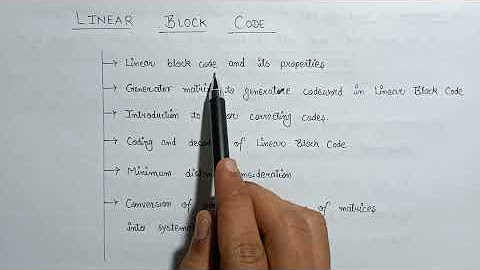 LINEAR BLOCK CODE
Linear block code and its properties
Generator matrix to generate codeword in Linear Block Code
Introduction to correcting codes.
Coding and of Linear Block Code
Minimum
Conversion of of matrices
into